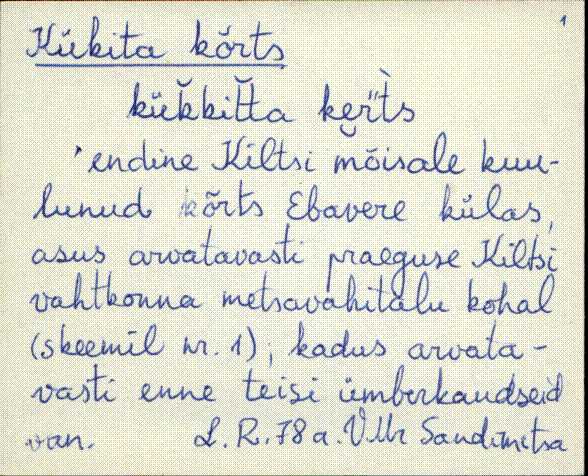 1
Kükita kõrts
kük̆kit̆ta ke̮r̀ts
endine Kiltsi mõisale kuu-
lunud kõrts Ebavere külas,
asus arvatavasti praeguse Kiltsi
vahtkonna metsavahitalu kohal
(skeemil nr. 1); kadus arvata-
vasti enne teisi ümberkaudseid
van. L. R. 78 a. V.Mr Sandimetsa